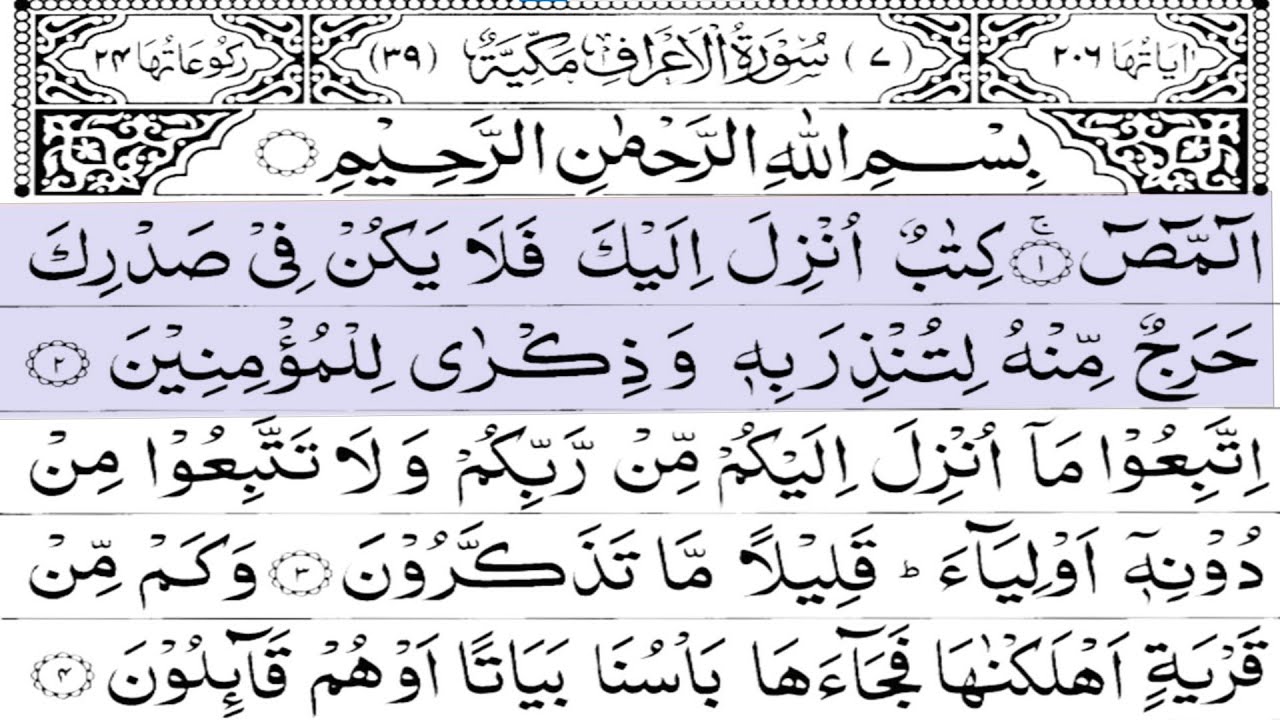 اٰیَاتُهَا ۲۰۶ (۷) سُوْرَةُ الْاَعْرَافِ مَكِّيَّةٌ (۳۹) رُكُوْعَاتُهَا ۲۴
بِسْمِ اللّٰهِ الرَّحْمٰنِ الرَّحِيْمِ
الٓمّٓصٓ ۚ‏﴿۱﴾ كِتٰبٌ اُنْزِلَ اِلَيْكَ فَلَا يَكُنْ فِىْ صَدْرِكَ
حَرَجٌ مِّنْهُ لِتُنْذِرَ بِهٖ وَذِكْرٰى لِلْمُؤْمِنِيْنَ ﴿۲﴾
اِتَّبِعُوْا مَآ اُنْزِلَ اِلَيْكُمْ مِّنْ رَّبِّكُمْ وَلَا تَتَّبِعُوْا مِنْ
دُوْنِهٖٓ اَوْلِيَآءَ ؕ قَلِيْلًا مَّا تَذَكَّرُوْنَ ﴿۳﴾ وَكَمْ مِّنْ
قَرْيَةٍ اَهْلَكْنٰهَا فَجَآءَهَا بَاْسُنَا بَيَاتًا اَوْ هُمْ قَآئِلُوْنَ ﴿۴﴾